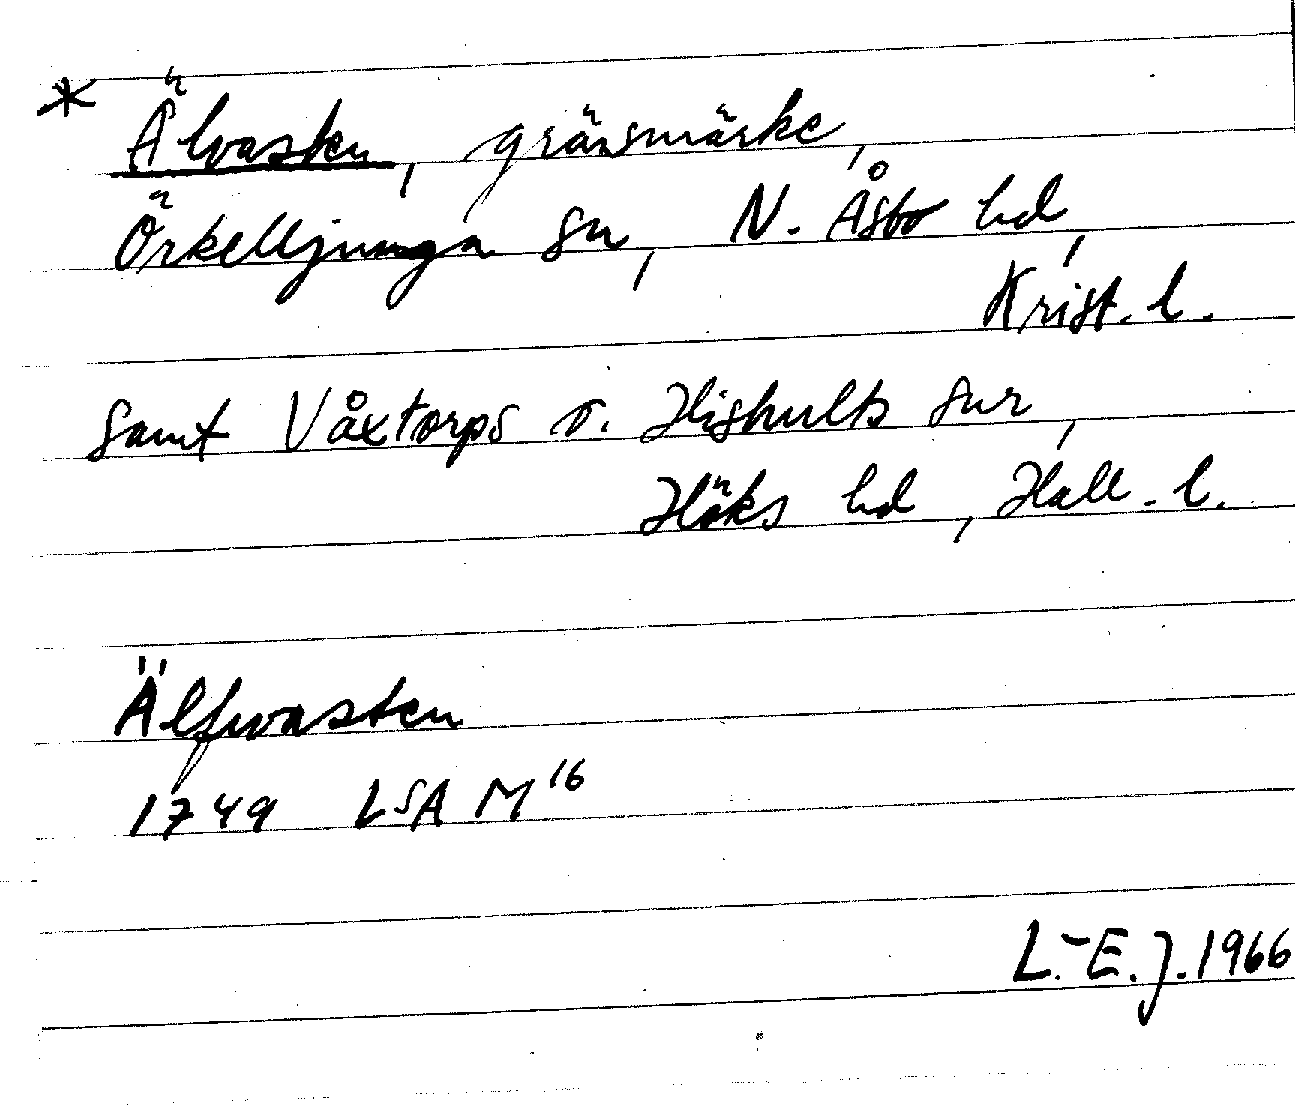 * Älvasten, gränsmärke,
Örkelljunga sn, N. Åsbo hd,
Krist. l.
samt Våxtorps o. Hishults snr,
Höks hd, Hall. l.
Älfvasten
1749 LSA M16
L.-E. J. 1966